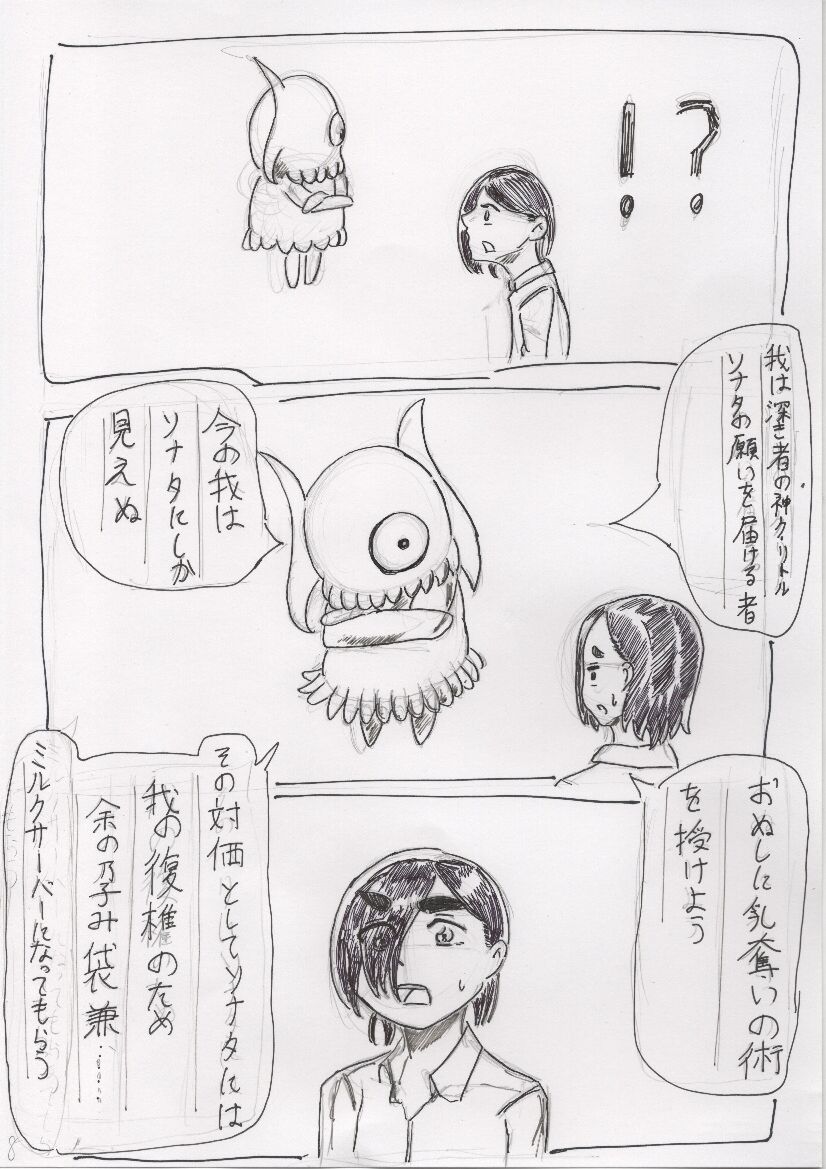 !?
我は深き者の神クィリトル
ソナタの願いを届ける者
今の我は
ソナタにしか
見えぬ
おぬしに乳奪いの術
を授けよう
その対価としてソナタには
我の復権のため
余の孕み袋兼……
ミルクサーバーになってもらう
8